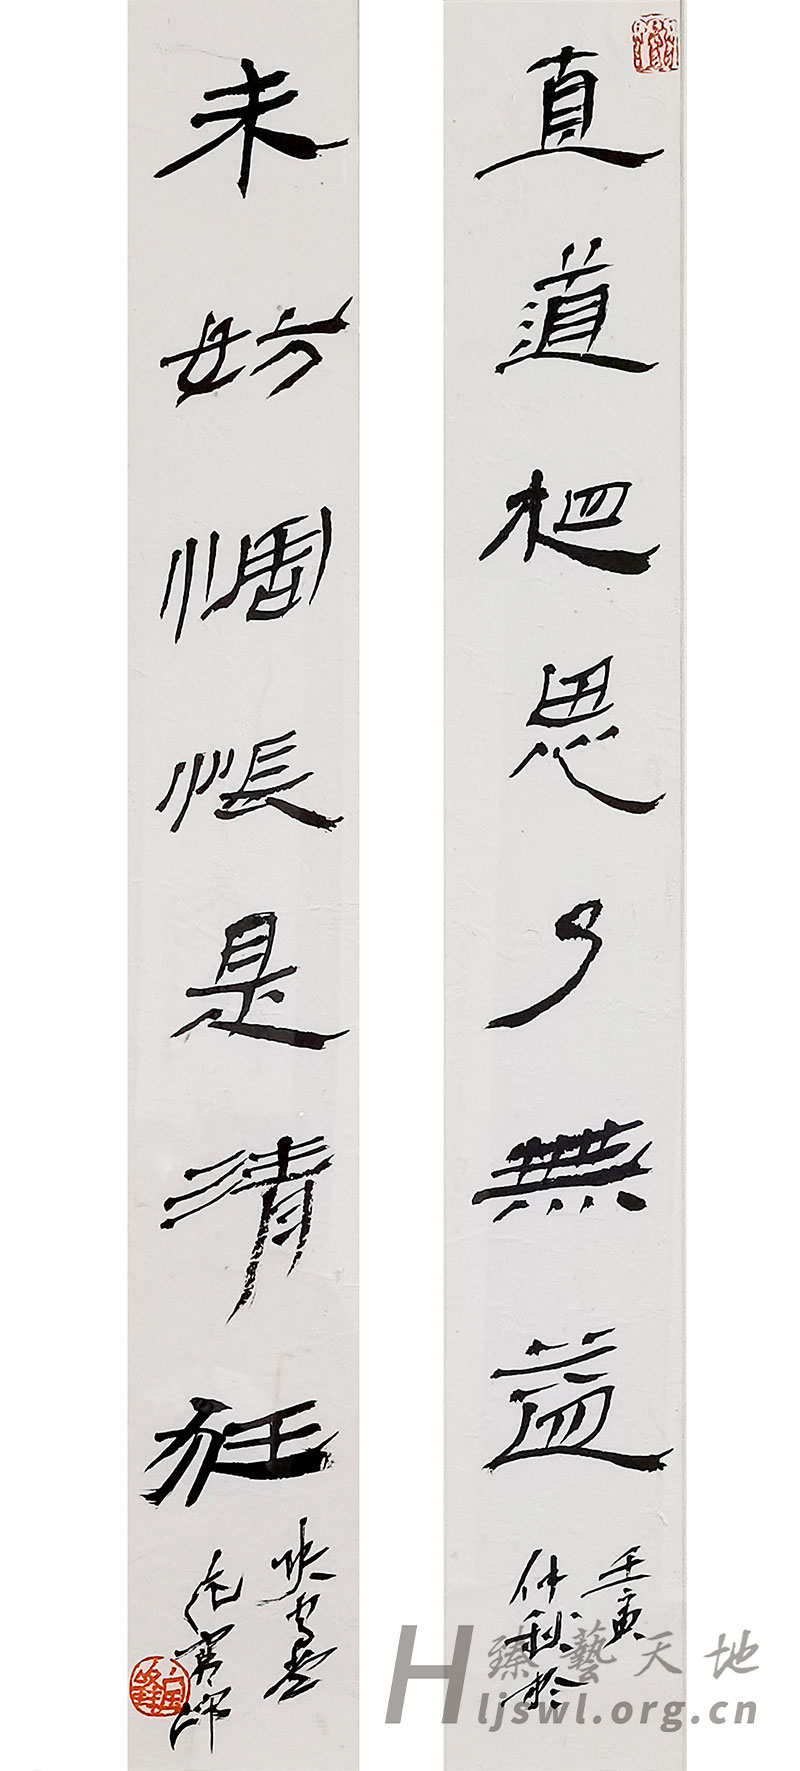 直道相思了無益
壬寅
仲秋於
未妨惆悵是清狂
臻藝天地
Hljswl.org.cn